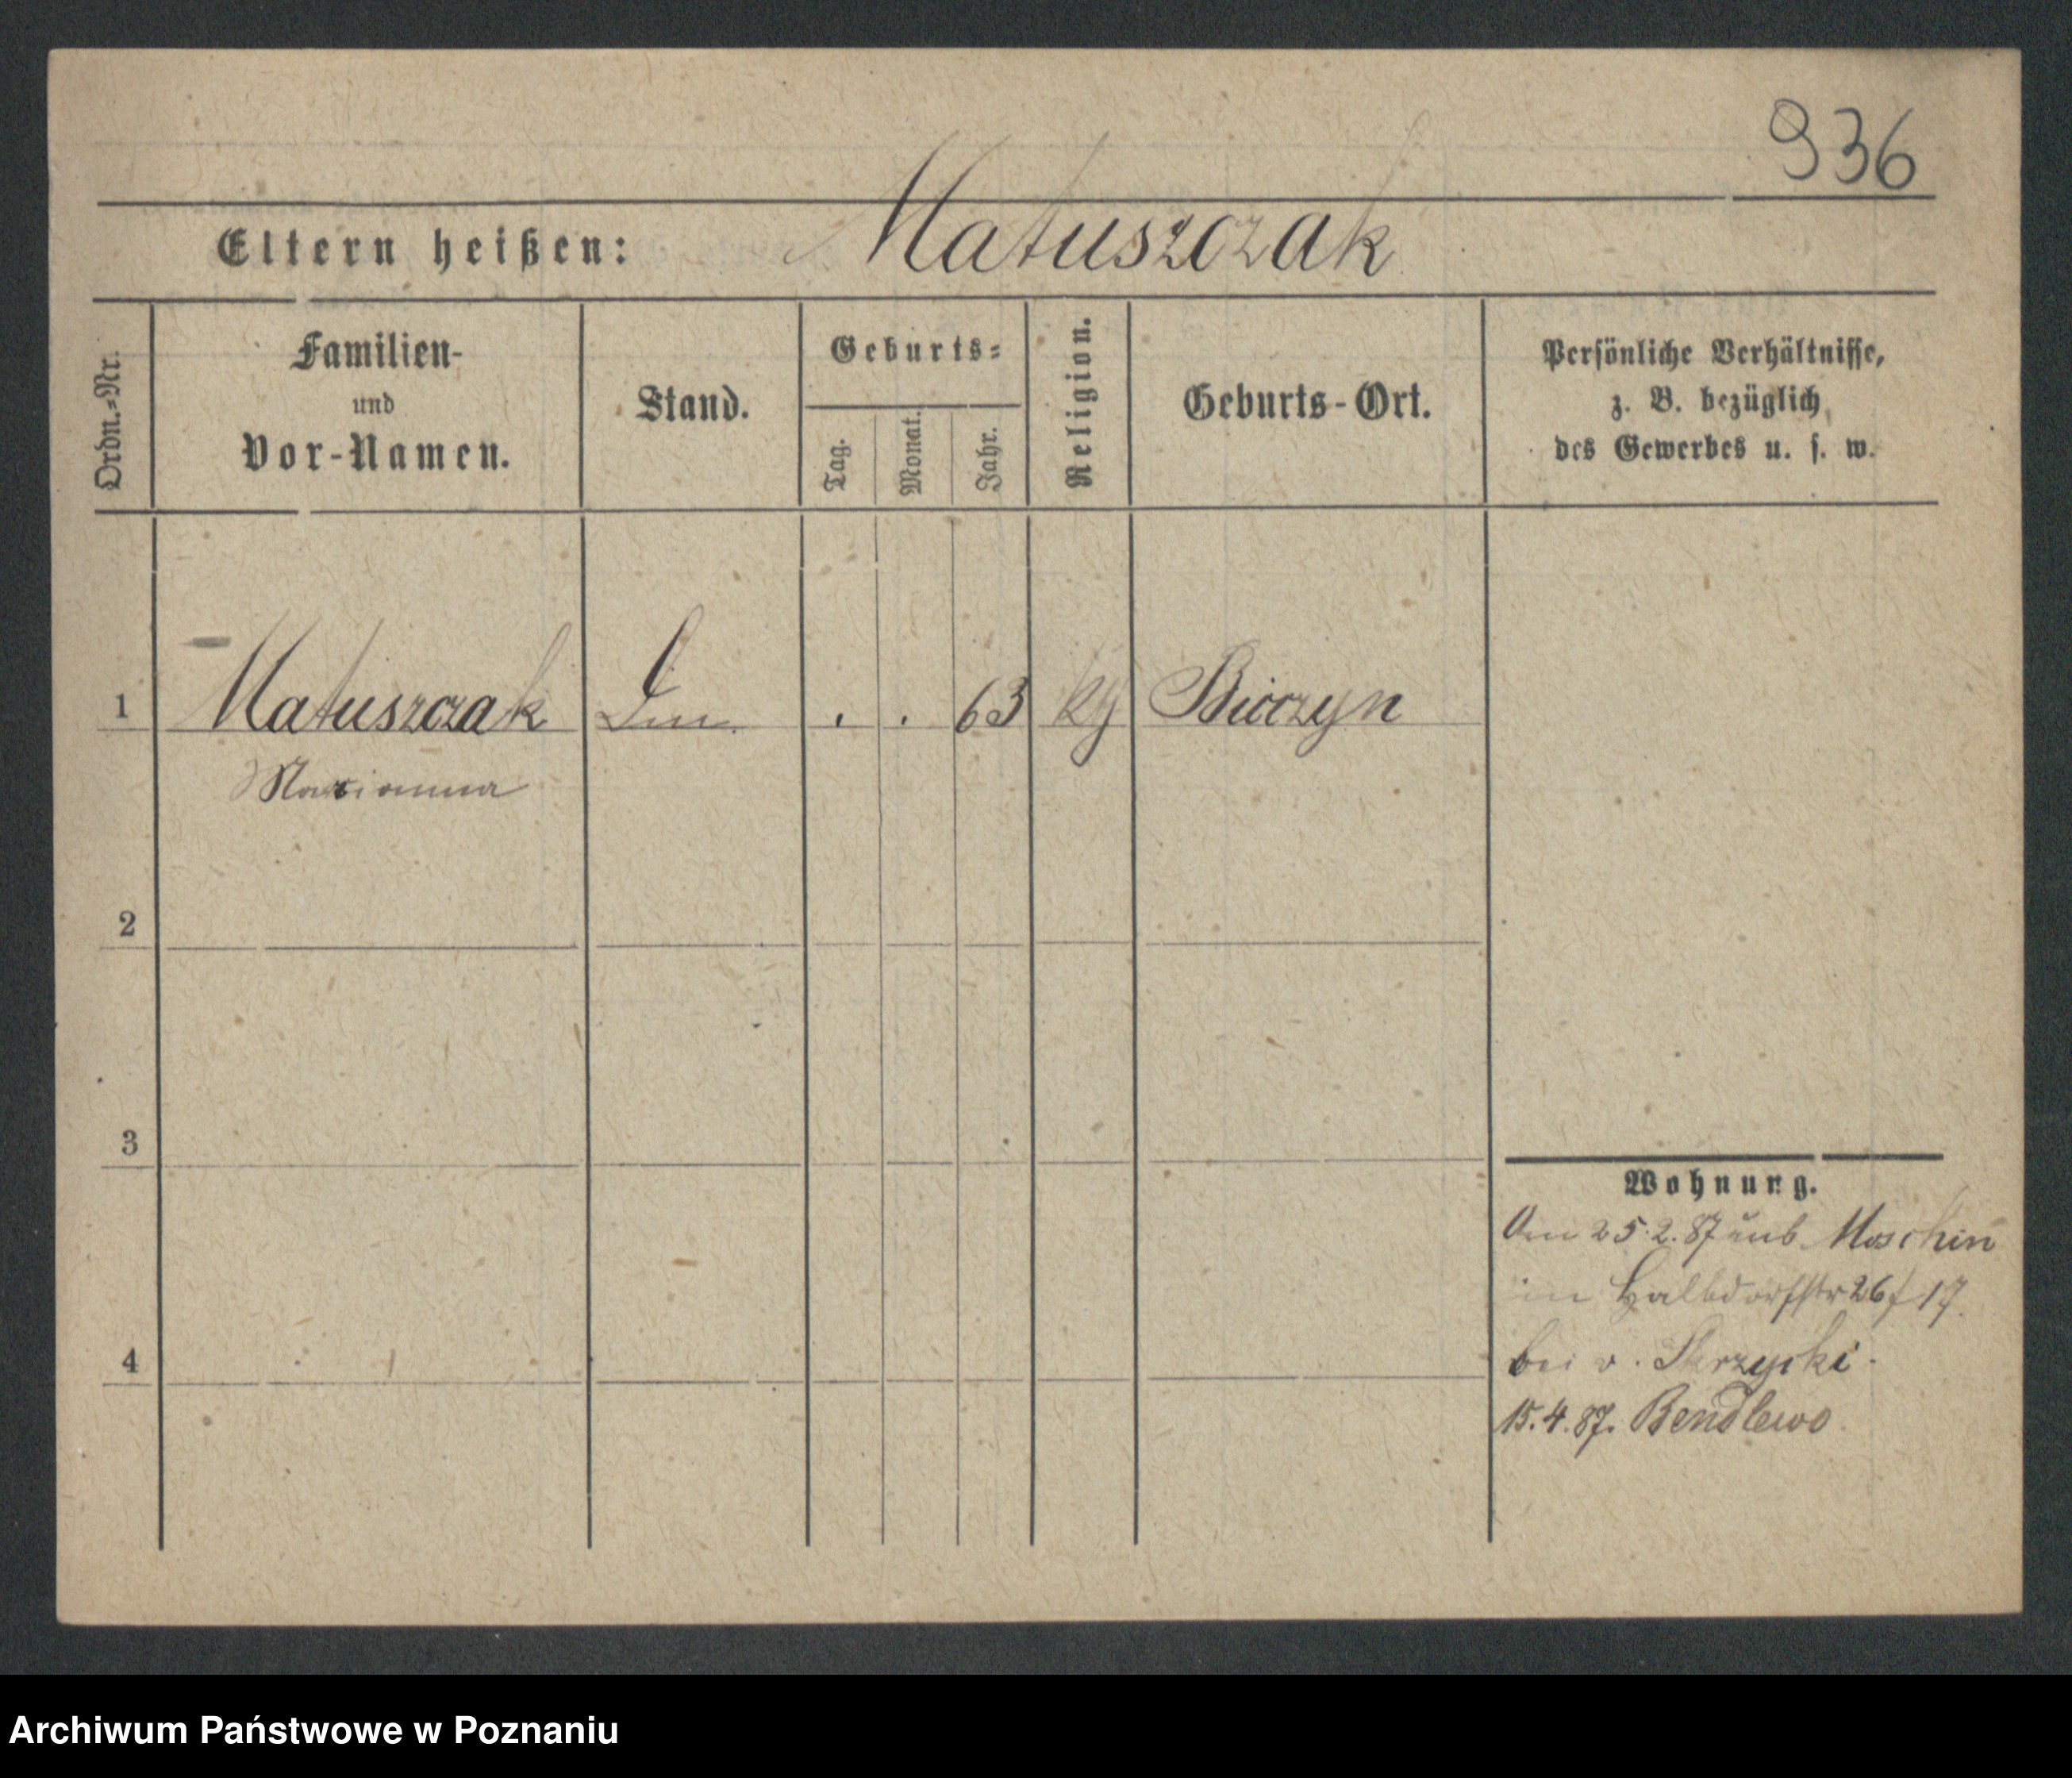 936
Eltern heißen: Matuszczak
Ordn.=Nr.
Familien-
und
Vor-Namen.
Stand.
Geburts=
Tag.
Monat.
Jahr.
Religion.
Geburts-Ort.
Persönliche Verhältnisse,
z. B. bezüglich
des Gewerbes u. s. w.
1 Matuszczak . . 63 kg
Marianna
2
3
4
Wohnung.
25.2.87 Moschin
in Halbdorfstr 26/17.
bei v. Skrzycki.
15.4.87. Bendlewo
Archiwum Państwowe w Poznaniu